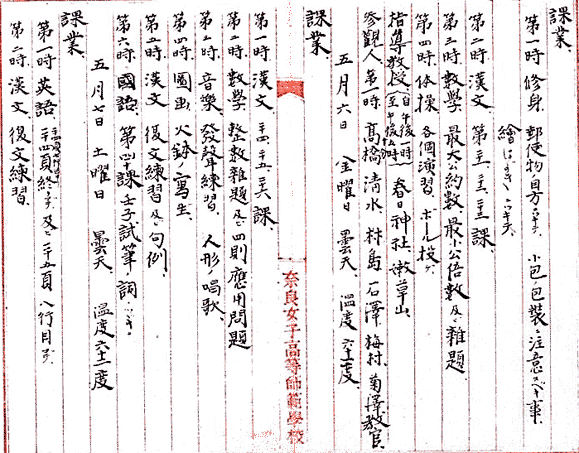 課業.
第一時 修身. 郵使物目方ニツキテ. 小包ノ包裝ニ注意スベキ事.
繪はがきニツキテ.
第二時 漢文. 第二十一、二十二、二十三課.
第三時 數學 最大公約數最小公倍數及ビ雜題.
第四時 体操. 各個演習. ボール投ゲ.
指導敎授(自午後一時至午後 時) 春日神社. 嫩草山.
參觀人. 第一時 高橋. 清水. 村島. 石澤. 梅村. 菊澤敎官.
五月六日 金曜日 曇天. 温度 六十二度
課業.
第一時 漢文 二十四、二十五、二十六課.
第二時 數學 整數雜題及ビ四則應用問題
第三時 音樂. 發聲練習. 人形ノ唱歌.
第四時 圖画 火鉢ノ寫生.
第五時 漢文 復文練習及ビ句例.
第六時 國語. 第四十課 壬子試筆ノ詞.
五月七日 土曜日 曇天 温度 六十二度
課業.
第一時 英語 二十四頁終マデ及ビ二十五頁八行目マデ.
第二時 漢文 復文練習.
奈良女子高等師範學校